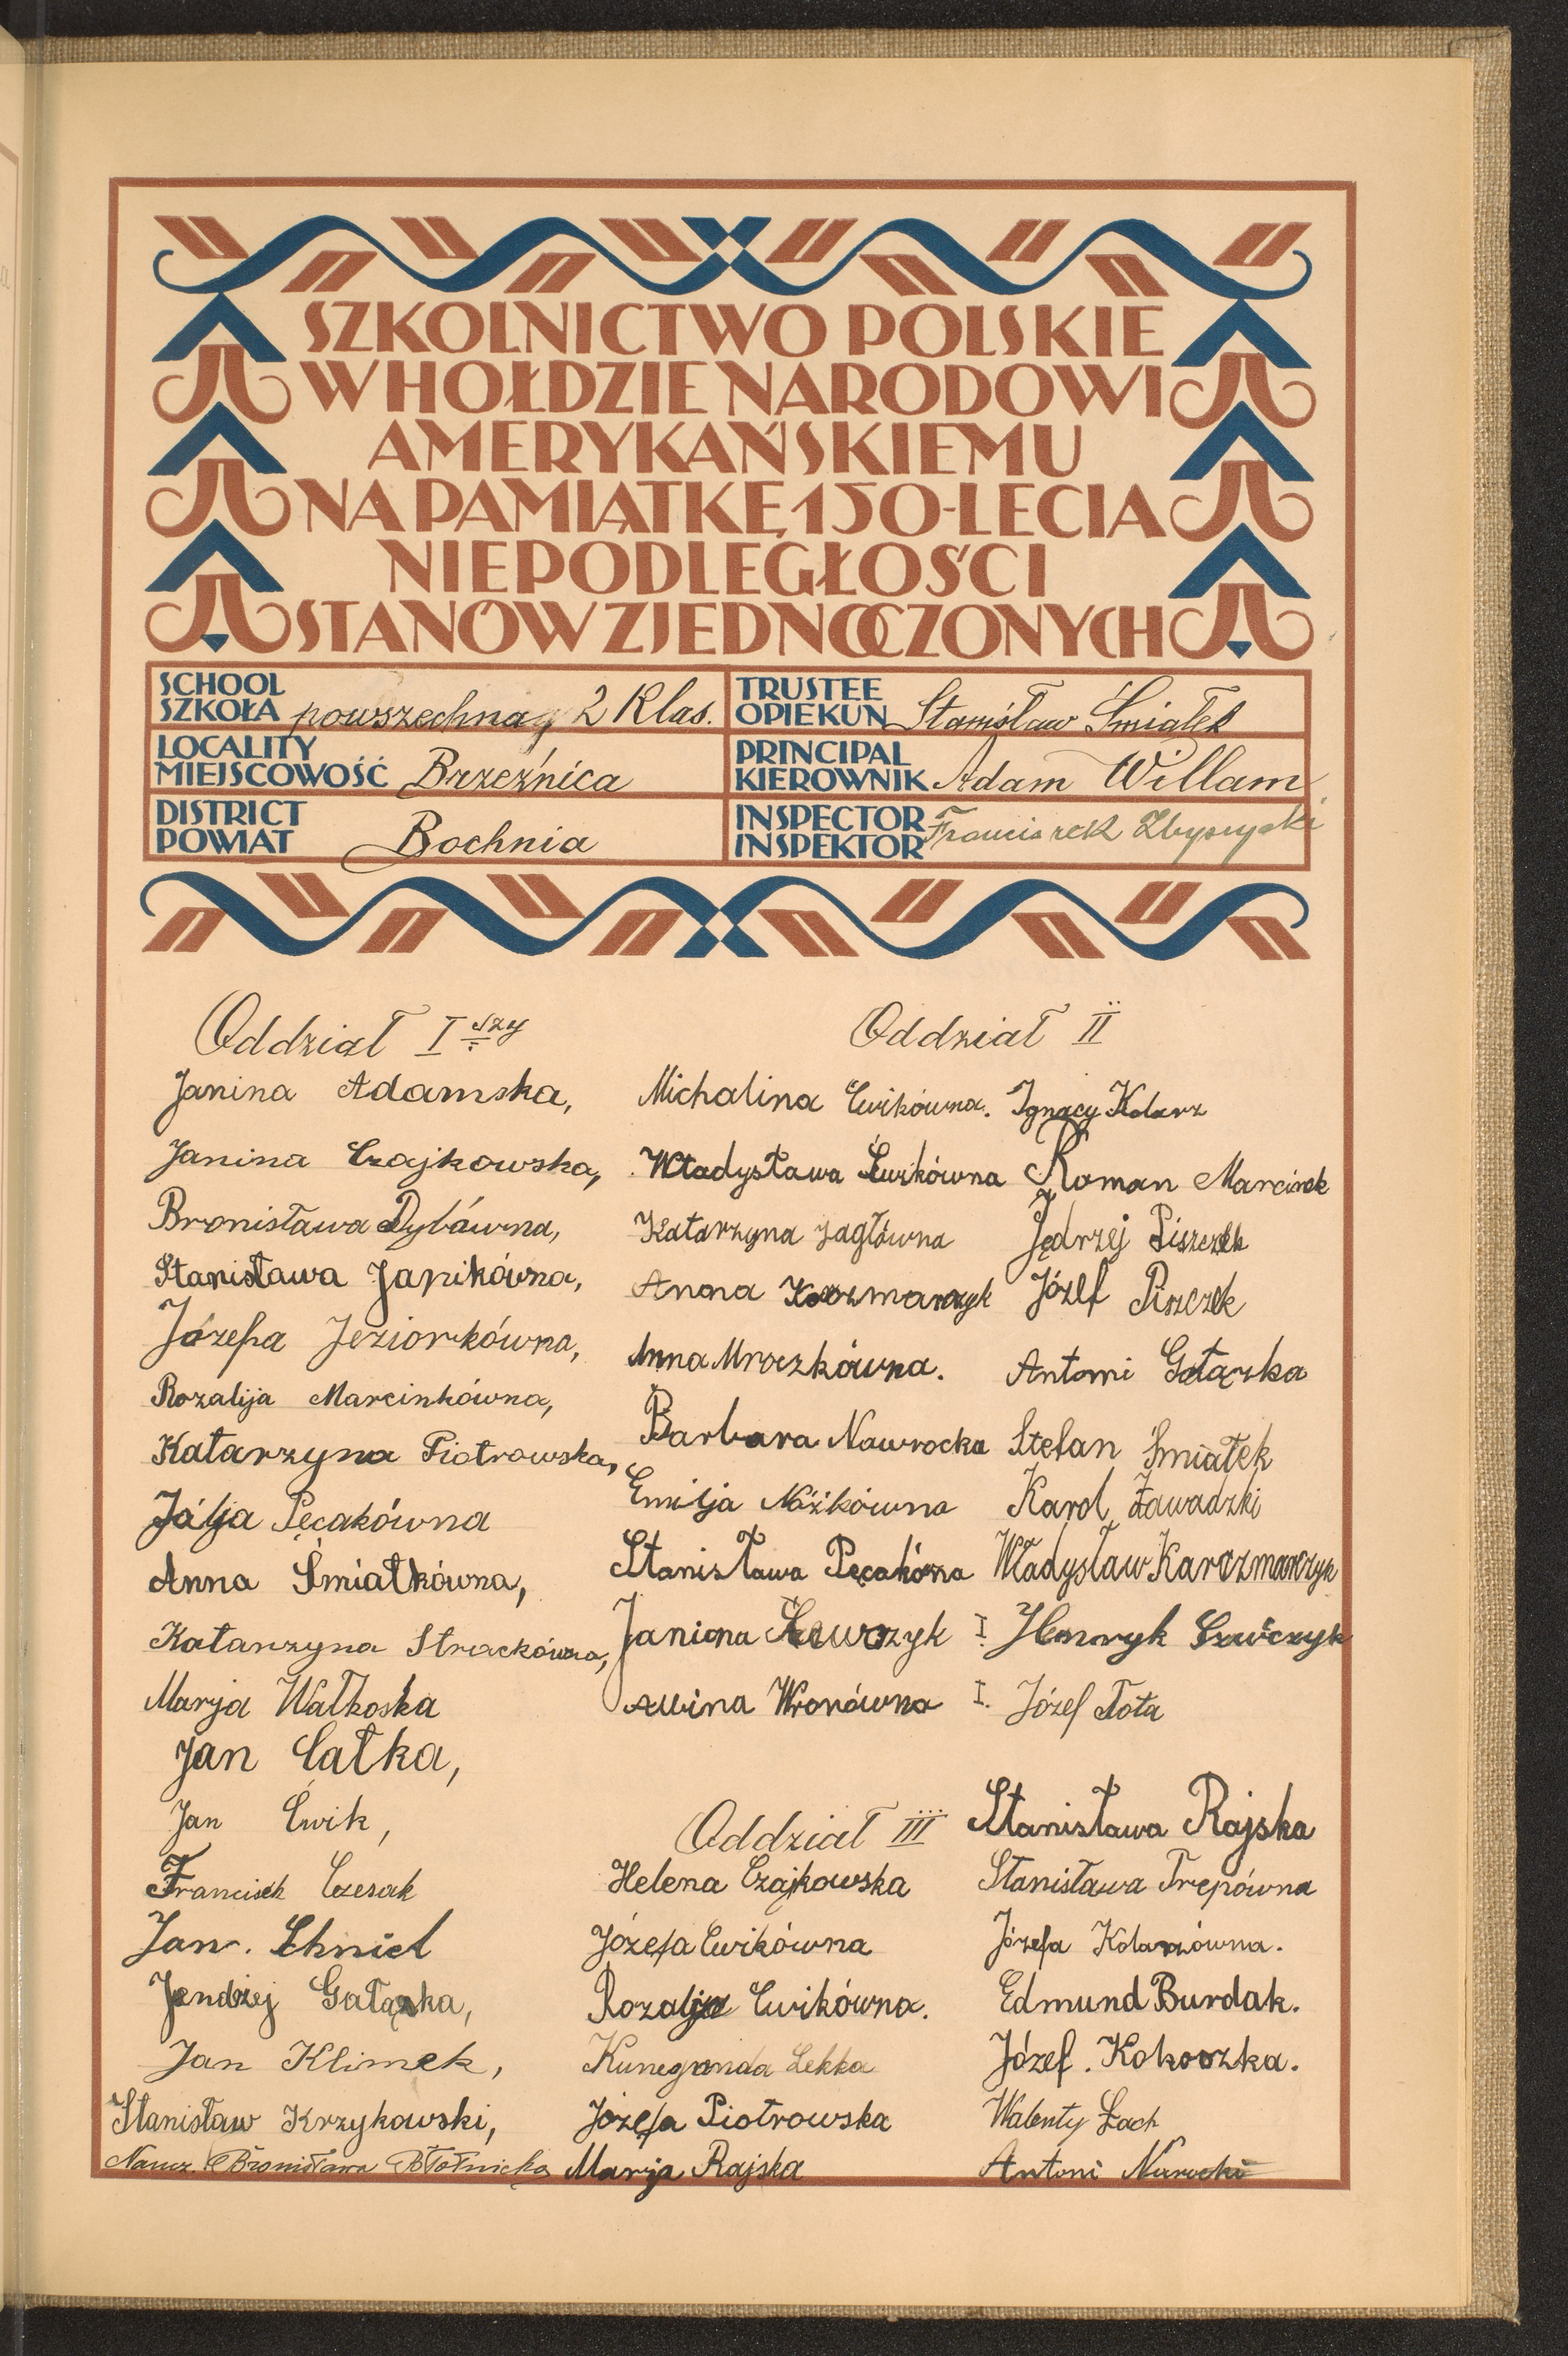 SZKOLNICTWO POLSKIE
W HOŁDZIE NARODOWI
AMERYKAŃSKIEMU
NA PAMIĄTKĘ 150-LECIA
NIEPODLEGŁOŚCI
STANÓW ZJEDNOCZONYCH
SCHOOL
SZKOŁA powszechna 2 Klas.
TRUSTEE
OPIEKUN Stanisław Śmiałek
LOCALITY
MIEJSCOWOŚĆ Brzeźnica
PRINCIPAL
KIEROWNIK Adam Willam
DISTRICT
POWIAT Bochnia
INSPECTOR
INSPEKTOR Franciszek
Oddział I szy
Janina Adamska,
Janina Czajkowska,
Bronisława Dybówna,
Stanisława Janikówna,
Józefa Jeziorkówna,
Rozalija Marcinkówna,
Katarzyna Piotrowska,
Pęcakówna
Anna Śmiałkówna,
Katarzyna Strackówna,
Marja Wałkoska
Jan Całka,
Jan Ćwik,
Francisek Czesak
Jan. Chniel
Jendrzej Gałązka,
Jan Klimek,
Stanisław Krzykowski,
Naucz. Bronisława Błotnicka
Oddział II
Michalina Ćwikówna.
Władysława Ćwikówna
Katarzyna Jaglówna
Anna Karczmarczyk
Anna Mroczkówna.
Barbara Nawrocka
Emilja Nóżkówna
Stanisława Pęcakówna
Janina Szewczyk
Wronówna
Ignacy Kolarz
Roman Marcinek
Jędrzej Piszczek
Józef Piszczek
Antoni Gałązka
Stefan Śmiałek
Karol Zawadzki
Władysław Karczmarczyk
I. Henryk Szewczyk
I. Józef Tota
Oddział III
Helena Czajkowska
Józefa Ćwikówna
Rozalja Ćwikówna.
Kunegunda Lekka
Józefa Piotrowska
Marja Rajska
Stanisława Rajska
Stanisława Trepówna
Józefa Kolarzówna.
Edmund Burdak.
Józef. Kokoszka.
Walenty Łach
Antoni